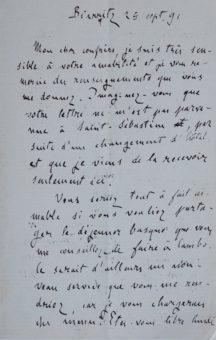 Biarritz 25 sept. 91
Mon cher confrère, je suis très sen-
sible à votre amabilité et je vous re-
mercie des renseignements que vous
me donnez. Imaginez-vous que
votre lettre ne m'est pas parve-
nue à Saint-Sébastien, par
suite d'un changement d'hôtel
et que je viens de la recevoir
seulement ici.
Vous seriez tout à fait ai-
mable si vous vouliez parta-
ger le déjeuner basque que vous
me conseillez de faire à Cambo.
Ce serait d'ailleurs un nou-
veau service que vous me ren-
driez car je vous chargerais
du menu. Êtes-vous libre